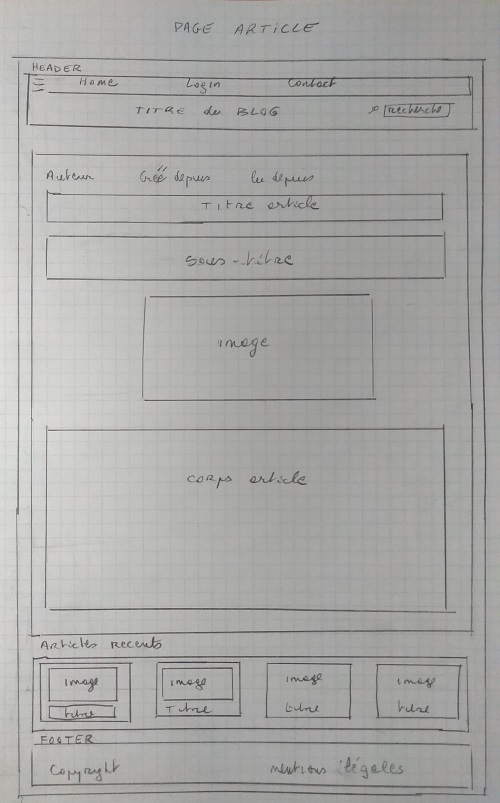 PAGE ARTICLE
HEADER
Home Login Contact
TITRE du BLOG recherche
Auteur Créé depuis lu depuis
TITRE article
sous-titre
image
corps article
Articles recents
image image image image
titre Titre titre titre
FOOTER
Copyright mentions légales